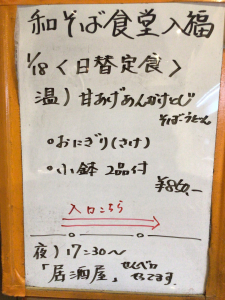 和そば食堂入福
1/18<日替定食>
温)甘あげあんかけとじ
そば・うどん
◦おにぎり(さけ)
◦小鉢2品付
¥850,-
入口こちら
夜)17:30〜
「居酒屋」せんべろ
やってます。